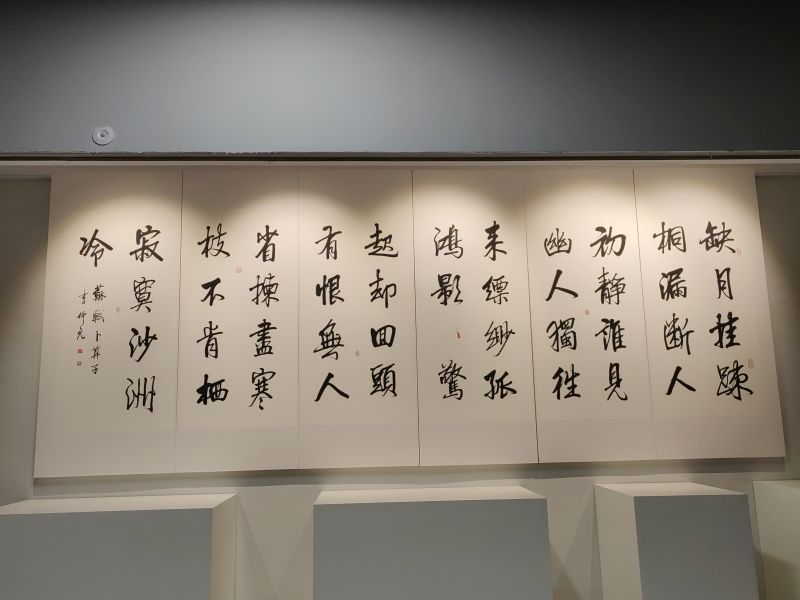 缺月挂踈
桐漏断人
初静誰見
幽人獨徃
来缥缈孤
鴻影驚
起却回頭
有恨無人
省揀盡寒
枝不肯栖
寂寞沙洲
冷
蘇軾卜算子
李仲元